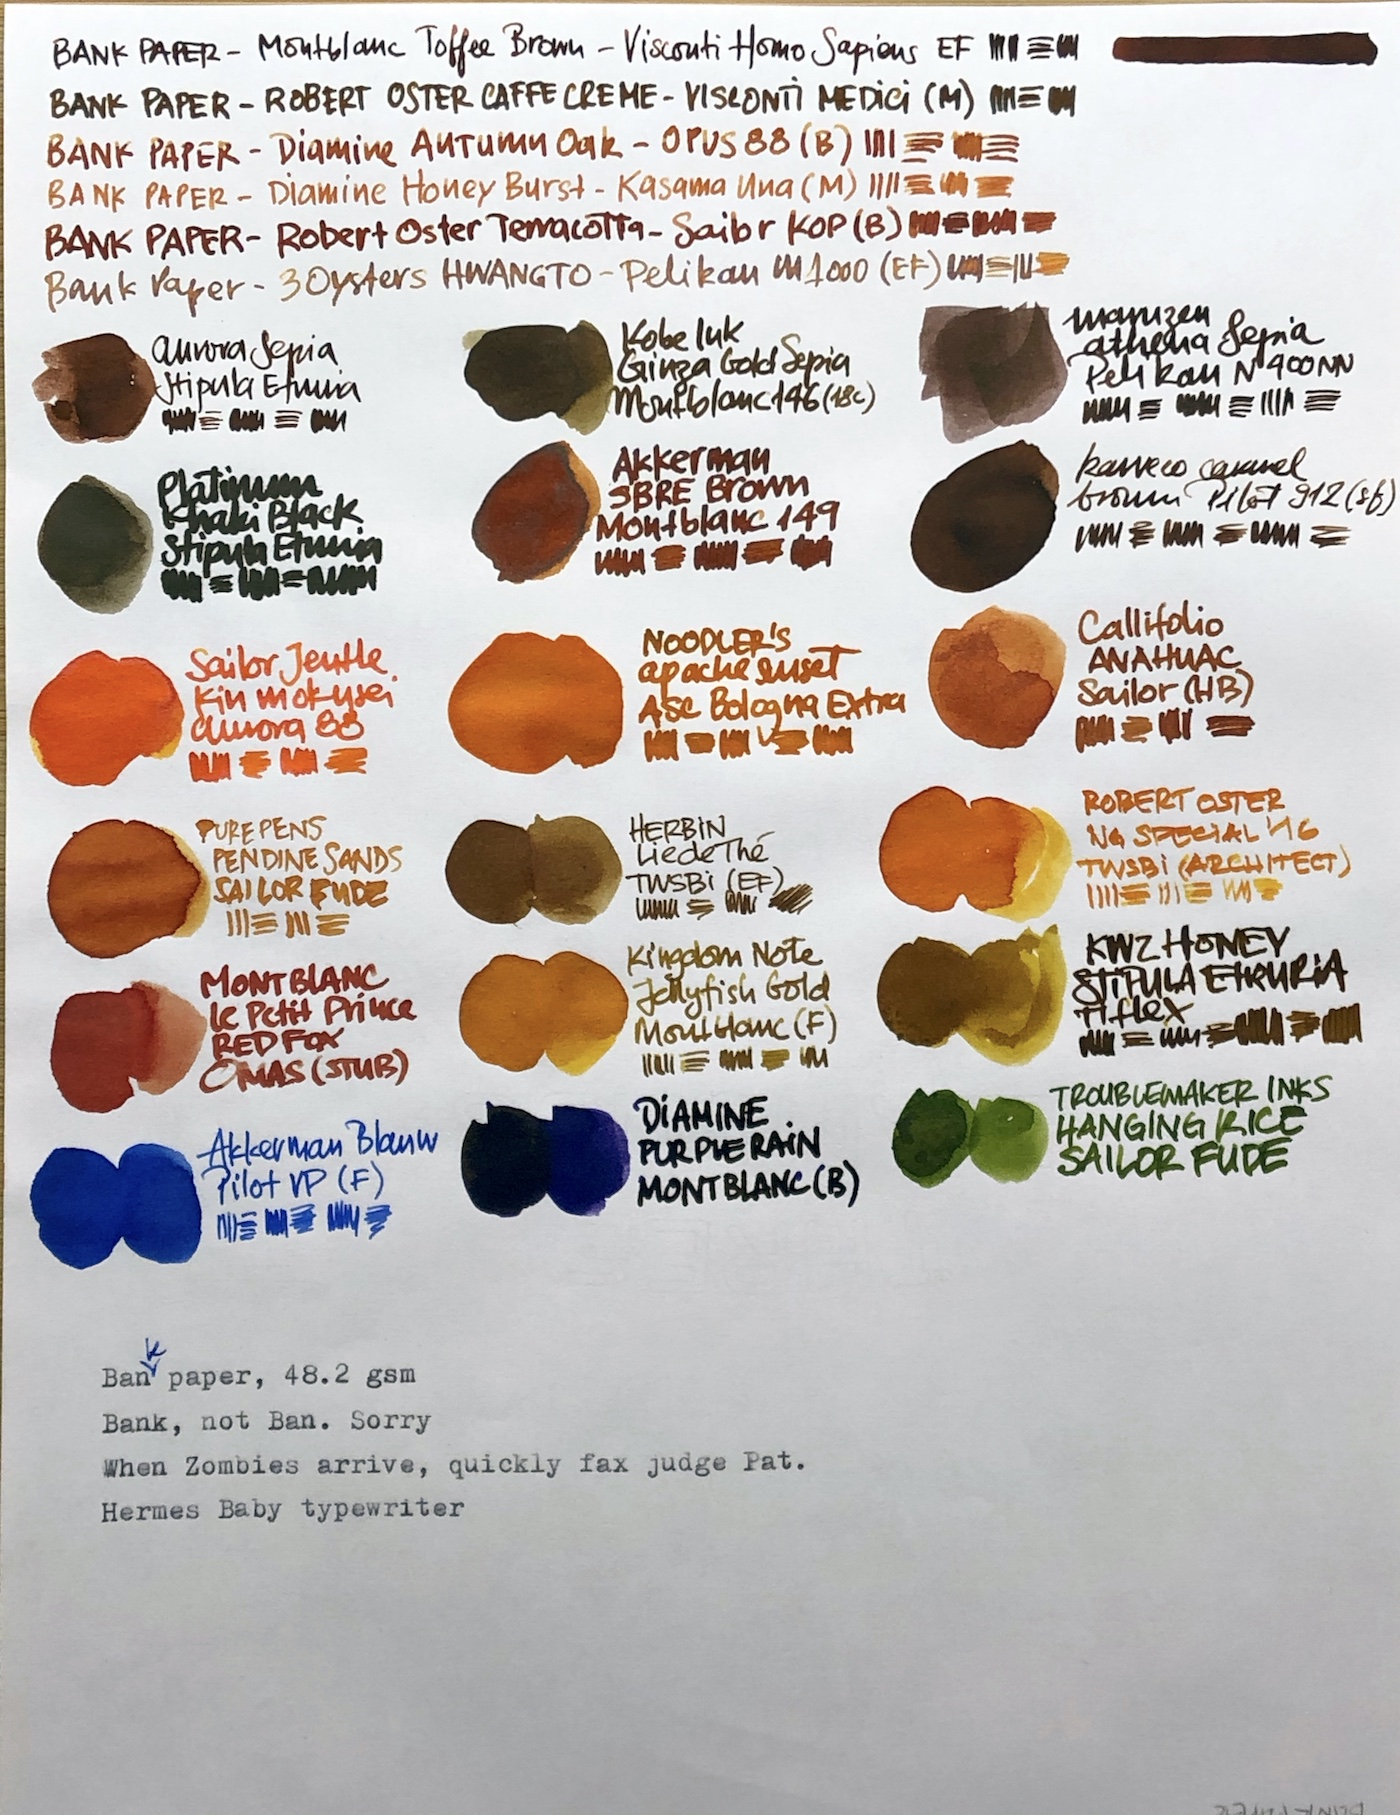 BANK PAPER - Montblanc Toffee Brown - Visconti Homo Sapiens EF
BANK PAPER - ROBERT OSTER CAFFE CREME - VISCONTI MEDICI (M)
BANK PAPER - Diamine AUTUMN Oak - OPUS 88 (B)
BANK PAPER - Diamine Honey Burst - Kasama Una (M)
BANK PAPER - Robert Oster Terracotta - Sailor KOP (B)
Bank Paper - 3 Oysters HWANGTO - Pelikan M1000 (EF)
Aurora Sepia
Stipula Etruria
Kobe Ink
Ginza Gold Sepia
Montblanc 146 (18c)
Maruzen
athena Sepia
Pelikan N400NN
Platinum
Khaki Black
Stipula Etruria
Akkerman
SBRE Brown
Montblanc 149
kaweco caramel
brown Pilot 912 (sf)
Sailor Jentle
Kin mokusei
Aurora 88
NOODLER'S
apache sunset
ASC Bologna Extra
Callifolio
ANAHUAC
Sailor (HB)
PURE PENS
PENDINE SANDS
SAILOR FUDE
HERBIN
Lie de Thé
TWSBi (EF)
ROBERT OSTER
NG SPECIAL '16
TWSBi (ARCHITECT)
MONTBLANC
le Petit Prince
RED FOX
OMAS (STUB)
Kingdom Note
Jellyfish Gold
Montblanc (F)
KWZ HONEY
STIPULA ETRURIA
Tiflex
Akkerman Blauw
Pilot VP (F)
DIAMINE
PURPLE RAIN
MONTBLANC (B)
TROUBLEMAKER INKS
HANGING RICE
SAILOR FUDE
k
Ban paper, 48.2 gsm
Bank, not Ban. Sorry
When Zombies arrive, quickly fax judge Pat.
Hermes Baby typewriter